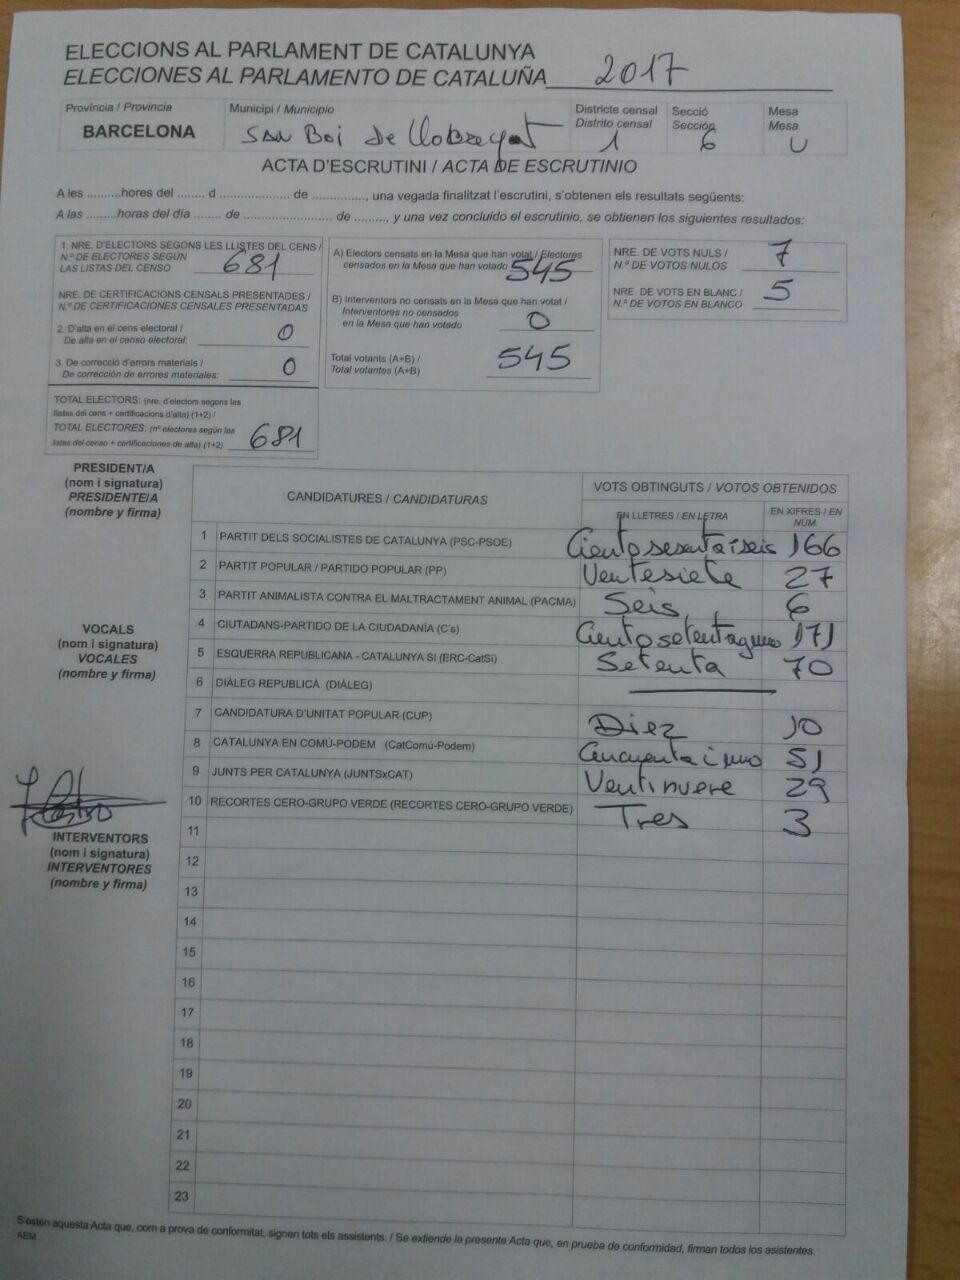 ELECCIONS AL PARLAMENT DE CATALUNYA
ELECCIONES AL PARLAMENTO DE CATALUÑA 2017
Província / Provincia Municipi / Municipio Districte censal Secció Mesa
Distrito censal Sección Mesa
BARCELONA San Boi de Llobregat 1 6 U
ACTA D'ESCRUTINI / ACTA DE ESCRUTINIO
A les ..........hores del ........ d ................... de ..............., una vegada finalitzat l'escrutini, s'obtenen els resultats següents:
A las .........horas del día ........ de ......................... de .........., y una vez concluido el escrutinio, se obtienen los siguientes resultados:
1. NRE. D'ELECTORS SEGONS LES LLISTES DEL CENS /
N.º DE ELECTORES SEGÚN
LAS LISTAS DEL CENSO 681
NRE. DE CERTIFICACIONS CENSALS PRESENTADES /
N.º DE CERTIFICACIONES CENSALES PRESENTADAS
2. D'alta en el cens electoral /
De alta en el censo electoral: 0
3. De correcció d'errors materials /
De corrección de errores materiales: 0
TOTAL ELECTORS: (nre. d'electors segons les
llistes del cens + certificacions d'alta) (1+2) /
TOTAL ELECTORES: (nº electores según las
listas del censo + certificaciones de alta) (1+2) 681
A) Electors censats en la Mesa que han votat / Electores
censados en la Mesa que han votado 545
B) Interventors no censats en la Mesa que han votat /
Interventores no censados
en la Mesa que han votado 0
Total votants (A+B) /
Total votantes (A+B) 545
NRE. DE VOTS NULS /
N.º DE VOTOS NULOS 7
NRE. DE VOTS EN BLANC /
N.º DE VOTOS EN BLANCO 5
PRESIDENT/A
(nom i signatura)
PRESIDENTE/A
(nombre y firma)
VOCALS
(nom i signatura)
VOCALES
(nombre y firma)
INTERVENTORS
(nom i signatura)
INTERVENTORES
(nombre y firma)
CANDIDATURES / CANDIDATURAS VOTS OBTINGUTS / VOTOS OBTENIDOS
EN LLETRES / EN LETRA EN XIFRES / EN NÚM.
1 PARTIT DELS SOCIALISTES DE CATALUNYA (PSC-PSOE) Ciento sesenta i seis 166
2 PARTIT POPULAR / PARTIDO POPULAR (PP) Ventesiete 27
3 PARTIT ANIMALISTA CONTRA EL MALTRACTAMENT ANIMAL (PACMA) Seis 6
4 CIUTADANS-PARTIDO DE LA CIUDADANÍA (C's) Ciento setentayuno 171
5 ESQUERRA REPUBLICANA - CATALUNYA SI (ERC-CatSí) Setenta 70
6 DIÀLEG REPUBLICÀ (DIÀLEG)
7 CANDIDATURA D'UNITAT POPULAR (CUP) Diez 10
8 CATALUNYA EN COMÚ-PODEM (CatComú-Podem) Cincuenta i uno 51
9 JUNTS PER CATALUNYA (JUNTSxCAT) Ventinueve 29
10 RECORTES CERO-GRUPO VERDE (RECORTES CERO-GRUPO VERDE) Tres 3
11
12
13
14
15
16
17
18
19
20
21
22
23
S'estén aquesta Acta que, com a prova de conformitat, signen tots els assistents. / Se extiende la presente Acta que, en prueba de conformidad, firman todos los asistentes.
AEM